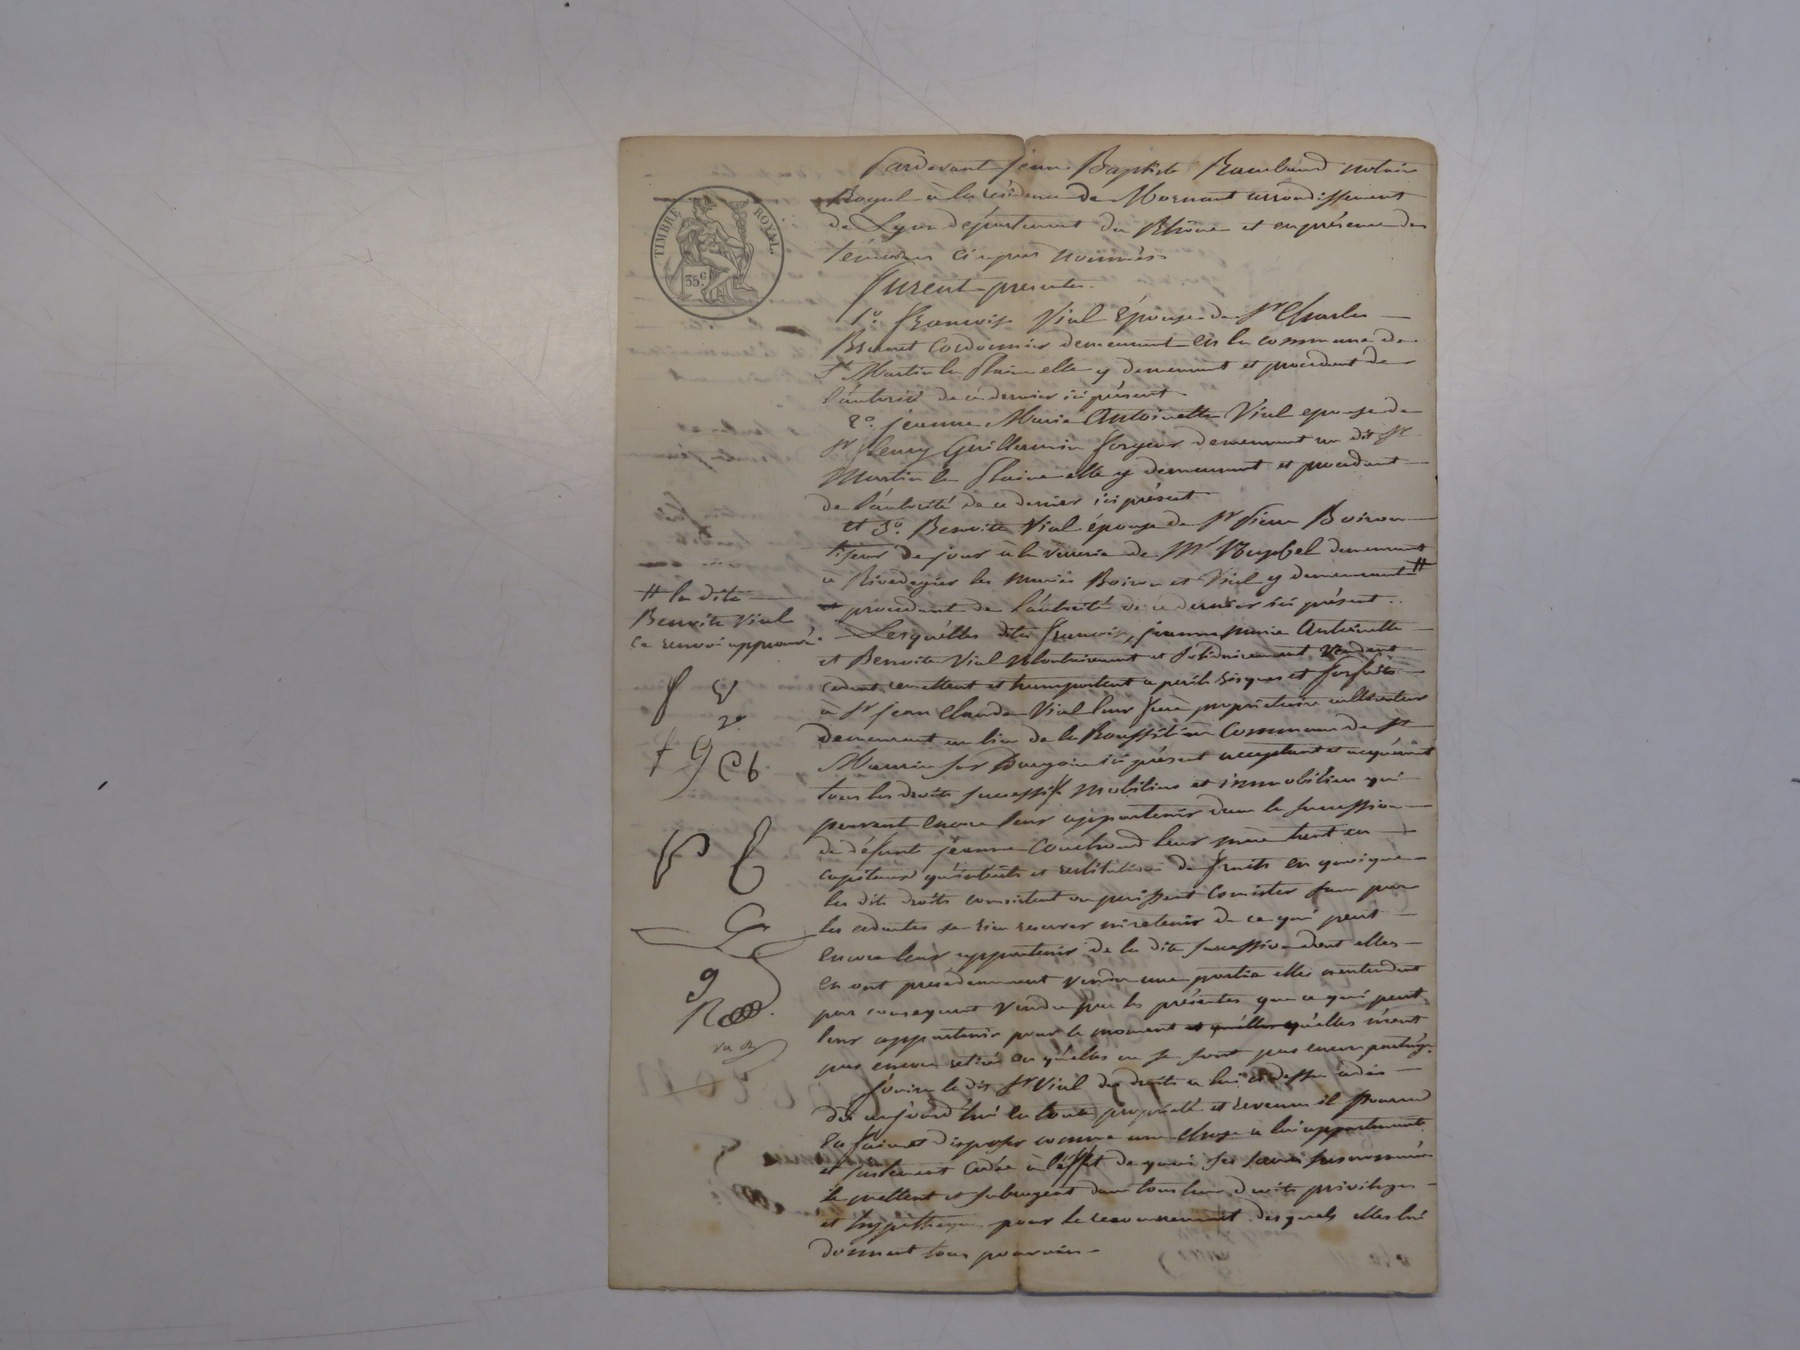 TIMBRE ROYAL
35c
Pardevant Jean Baptiste notaire
Royal à la résidence de Mornant arrondissement
de Lyon département du Rhône et en présence des
témoins ci après nommés
Furent présentes
1o. Françoise Vial épouse de Sr Charles
Brunet Cordonnier demeurant en la commune de
St Martin la Plaine elle y demeurant et procedant de
l'autorité de ce dernier ici présent
2o. jeanne Marie Antoinette Vial epouse de
Sr fleury Guillermin forgeur demeurant au dit St
Martin la Plaine elle y demeurant et procedant
de l'autorité de ce dernier ici présent
et 3o. Benoite Vial épouse de Sr Pierre Boiron
tiseur de jour à la verrerie de Mr demeurant
à Rivedegier les mariés Boiron et Vial y demeurant #
procedant de l'autorité de ce dernier ici présent..
# la dite
Benoite Vial
ce renvoi approuvé
Lesquelles dites françoise, jeanne marie Antoinette
et Benoite Vial Volontairement et Solidairement vendent
cedent remettent et transportent a perils risques et forfaits
à Sr jean Claude Vial leur frere propriétaire cultivateur
demeurant au lieu de la Commune de St
Maurice sur Dargoire ici présent acceptant et acquérant
tous les droits successifs mobiliers et immobiliers qui
peuvent encore leur appartenir dans la succession
de défunte jeanne leur mère tant en
capitaux qu'intérêts et restitution de fruits en quoi que
les dits droits consistent ou puissent consister sans par
les cedantes se rien reserver ni retenir de ce qui peut
encore leur appartenir de la dite succession dont elles
en ont precedemment vendu une partie elles n'entendent
par consequent vendre par les présentes que ce qui peut
leur appartenir pour le moment et qu'elles n'ont
pas encore retiré ou qu'elles ne se sont pas encore partagé
Jouira le dit Sr Vial des droits a lui ci dessus cédés
dès aujourd'hui en toute propriété et revenu il pourra
en faire et disposer comme une chose à lui appartenant
et justement cedée à l'effet de quoi ses soeurs susnommées
le mettent et subrogent dans tous leurs droits privileges
et hypotheques pour le recouvrement desquels elles lui
donnent tous pouvoirs